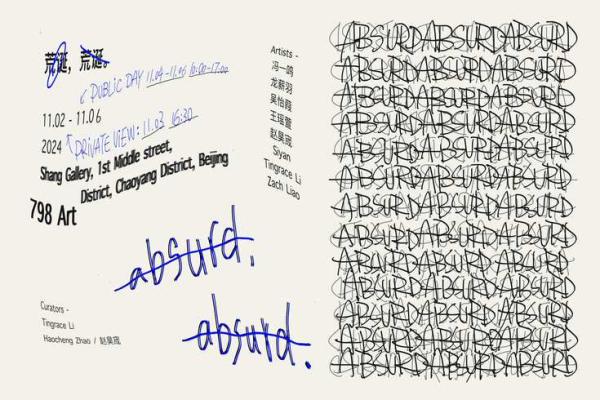 荒诞，荒诞。
PUBLIC DAY 11.04-11.06 10:00-17:00
11.02 - 11.06
2024
PRIVATE VIEW: 11.03 16:30
Shang Gallery, 1st Middle street,
798 Art District, Chaoyang District, Beijing
absurd.
absurd.
Curators -
Tingrace Li
Haocheng Zhao / 赵昊宬
Artists -
冯一鸣
龙薪羽
吴怡霞
王瑶萱
赵昊宬
Siyan
Tingrace Li
Zach Liao
ABSURDABSURDABSURD
ABSURDABSURDABSURD
ABSURDABSURDABSURD
ABSURDABSURDABSURD
ABSURDABSURDABSURD
ABSURDABSURDABSURD
ABSURDABSURDABSURD
ABSURDABSURDABSURD
ABSURDABSURDABSURD
ABSURDABSURDABSURD
ABSURDABSURDABSURD
ABSURDABSURDABSURD
ABSURDABSURDABSURD